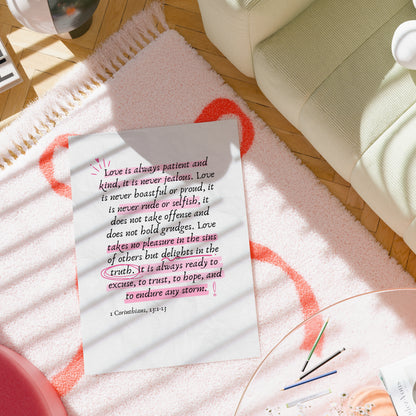 Love is always patient and
kind, it is never jealous. Love
is never boastful or proud, it
is never rude or selfish, it
does not take offense and
does not hold grudges. Love
takes no pleasure in the sins
of others but delights in the
truth. it is always ready to
excuse, to trust, to hope, and
to endure any storm.
1 Corinthians, 13:1-13